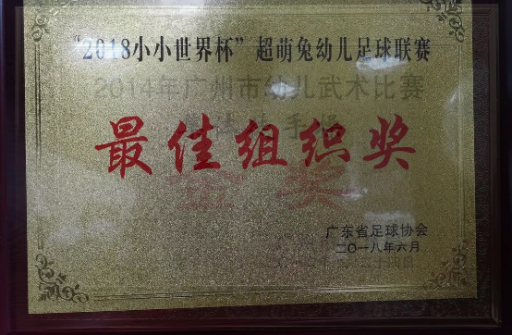 “2018小小世界杯”超萌兔幼儿足球联赛
2014年广州市幼儿武术比赛
最佳组织奖
金奖
广东省足球协会
二〇一八年六月